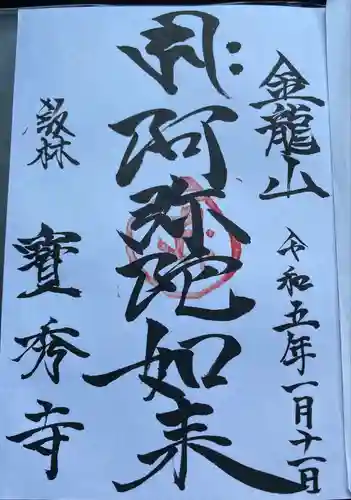 金龍山
令和五年一月十一日
阿弥陀如来
叢林
寶秀寺